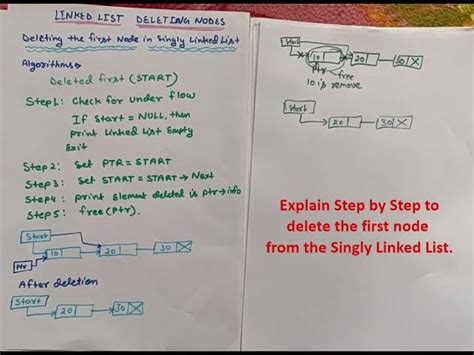 LINKED LIST DELETING NODES
Deleting the first Node in Singly Linked List
Algorithms
Deleted first (START)
Step1: Check for under flow
If Start = NULL, then
print Linked List Empty
Exit
Step2: set PTR = START
Step3: set START = START → Next
Step4: print Element deleted is ptr→info
Step5: free (Ptr).
Start
10 20 30 X
Ptr
After deletion
Start
20 30 X
Start
10 20 30 X
Ptr free
10 is remove
Start
20 30 X
Explain Step by Step to
delete the first node
from the Singly Linked List.